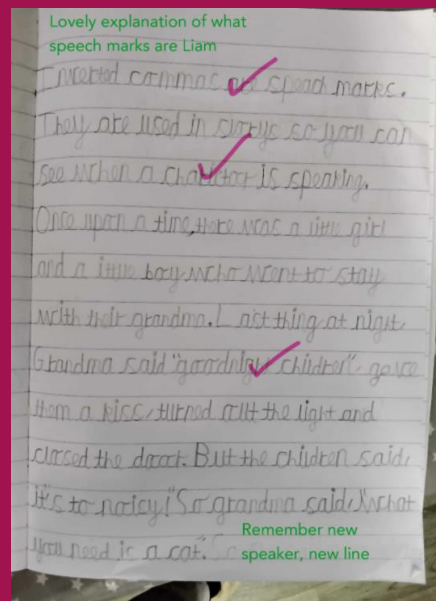 Lovely explanation of what
speech marks are Liam
Inverted commas are speach marks.
They are used in storys so you can
see when a charictor is speaking.
Once upon a time, there was a little girl
and a little boy who went to stay
with their grandma. Last thing at night,
Grandma said "goodnight children". gave
them a kiss, turned out the light and
closed the door. But the children said,
it's to noisy!" So grandma said, "What
you need is a cat."
Remember new
speaker, new line